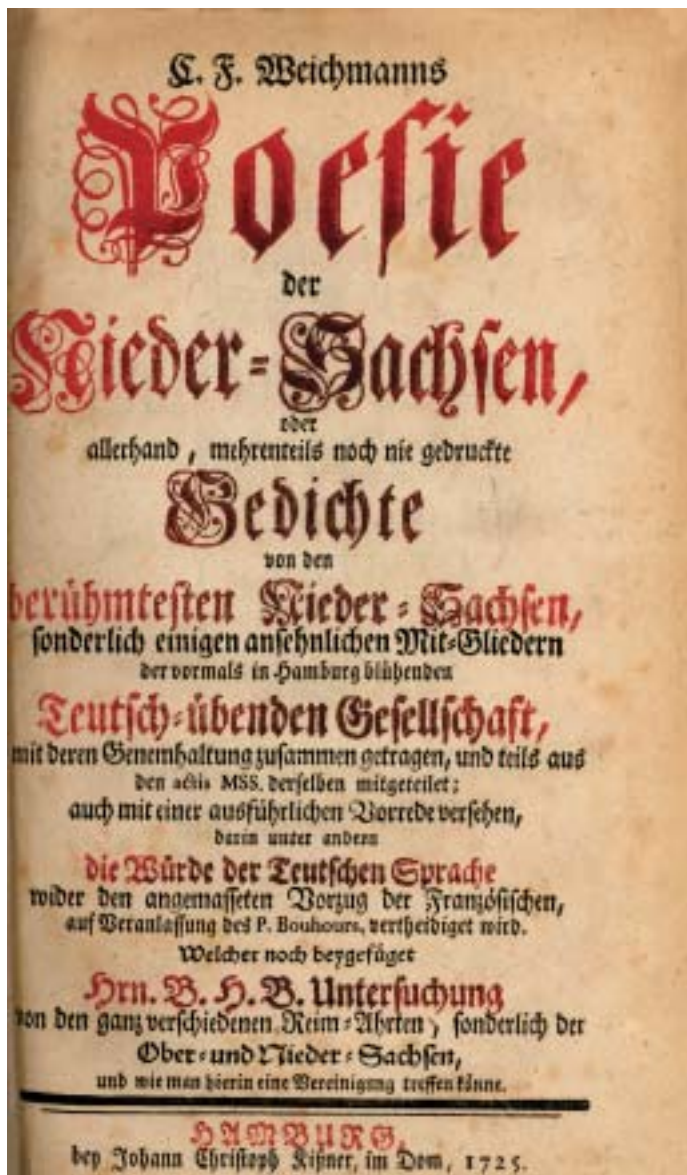 C. F. Weichmanns
Poesie
der
Nieder-Sachsen,
oder
allerhand, mehrenteils noch nie gedruckte
Gedichte
von den
berühmtesten Nieder-Sachsen,
sonderlich einigen ansehnlichen Mit-Gliedern
der vormals in Hamburg blühenden
Teutsch-übenden Gesellschaft,
mit deren Genemhaltung zusammen getragen, und teils aus
den actis MSS. derselben mitgeteilet;
auch mit einer ausführlichen Vorrede versehen,
darin unter andern
die Würde der Teutschen Sprache
wider den angemasseten Vorzug der Französischen,
auf Veranlassung des P. Bouhours, vertheidiget wird.
Welcher noch beygefüget
Hrn. B. H. B. Untersuchung
von den ganz verschiedenen Reim-Ahrten, sonderlich der
Ober- und Nieder-Sachsen,
und wie man hierin eine Vereinigung treffen könne.
HAMBURG,
bey Johann Christoph Kißner, im Dom, 1725.